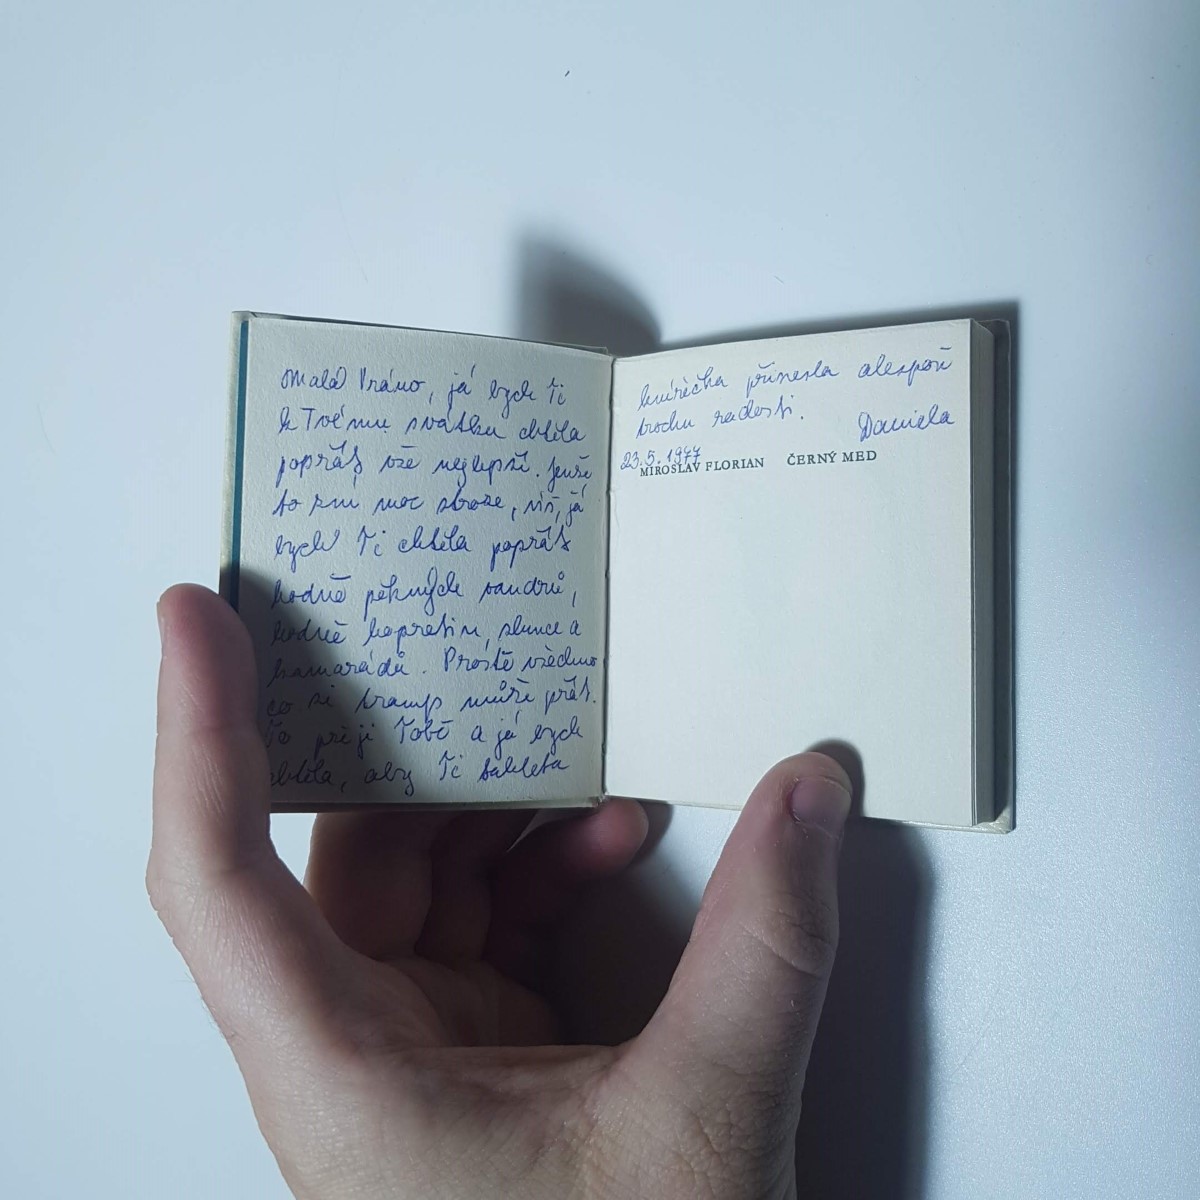 Malá Vráno, já bych Ti
k Tvému svátku chtěla
popřát vše nejlepší. Jenže
to zní moc stroze, víš, já
bych Ti chtěla popřát
hodně pěkných vandrů,
hodně kopretin, slunce a
kamarádů. Prostě všechno
co si tramp může přát.
To přeji Tobě a já bych
chtěla, aby Ti tahleta
knížečka přinesla alespoň
trochu radosti.
Daniela
23.5.1977
MIROSLAV FLORIAN ČERNÝ MED